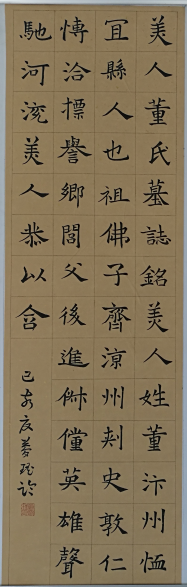 美人董氏墓誌銘美人姓董汴州恤
冝縣人也祖佛子齊涼州刾史敦仁
博洽摽譽鄉閭父後進俶儻英雄聲
馳河渷美人恭以含
己亥夏